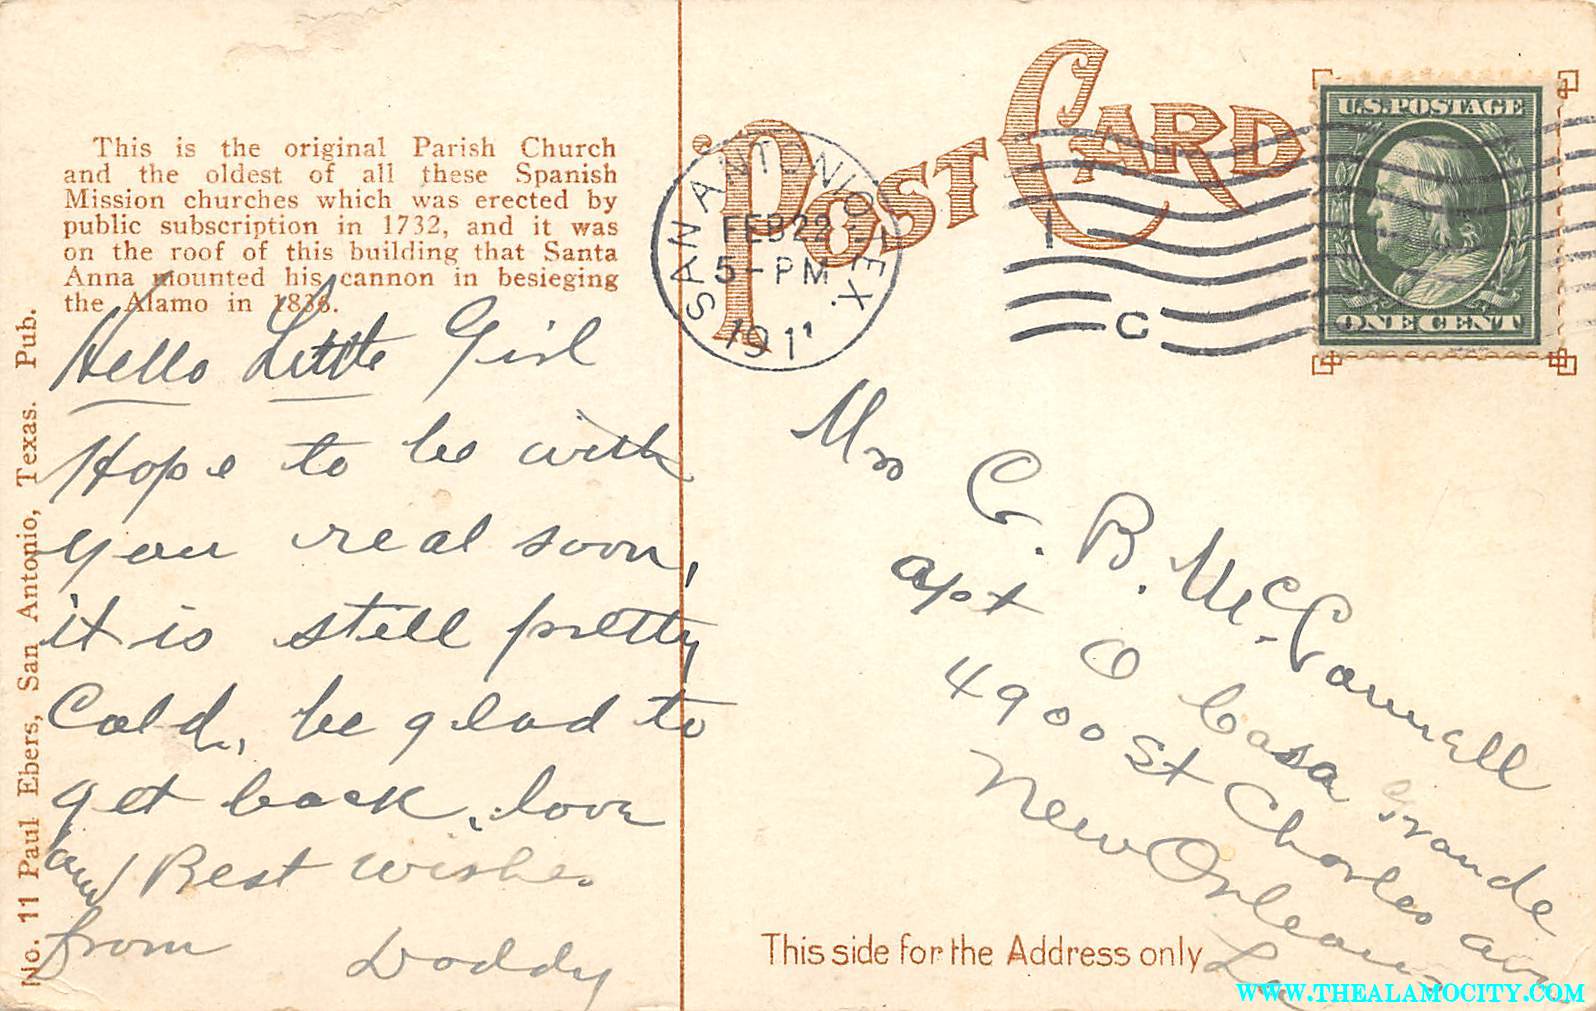 This is the original Parish Church
and the oldest of all these Spanish
Mission churches which was erected by
public subscription in 1732, and it was
on the roof of this building that Santa
Anna mounted his cannon in besieging
the Alamo in 1836.
No. 11 Paul Ebers, San Antonio, Texas. Pub.
Hello Little Girl
Hope to be with
you real soon,
it is still pretty
Cold, be glad to
get back, love
and Best wishes
from Daddy
POST CARD
SAN ANTONIO TEX.
FEB 22
5-PM
1911
1
C
U.S. POSTAGE
ONE CENT
Mrs C. B. McConnell
apt O Casa Grande
4900 St Charles ave
New Orleans
La
This side for the Address only
WWW.THEALAMOCITY.COM